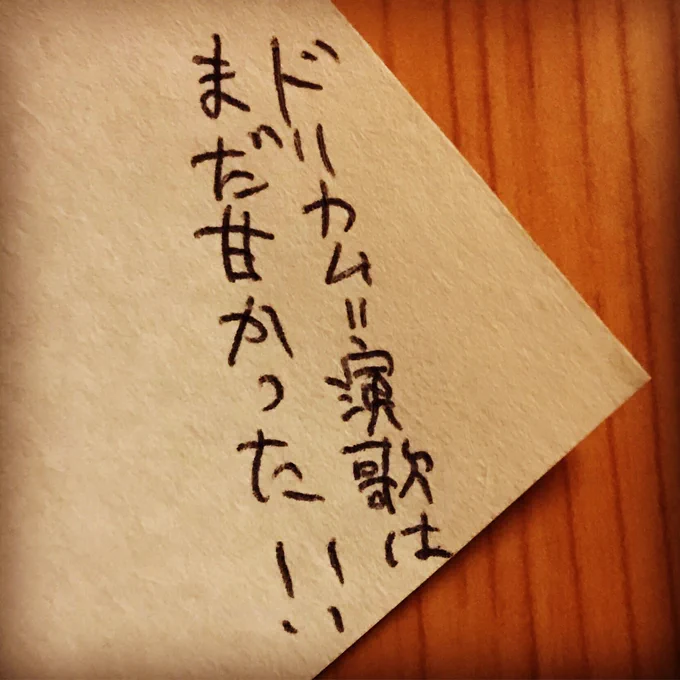 ドリカム=演歌は
まだ甘かった!!